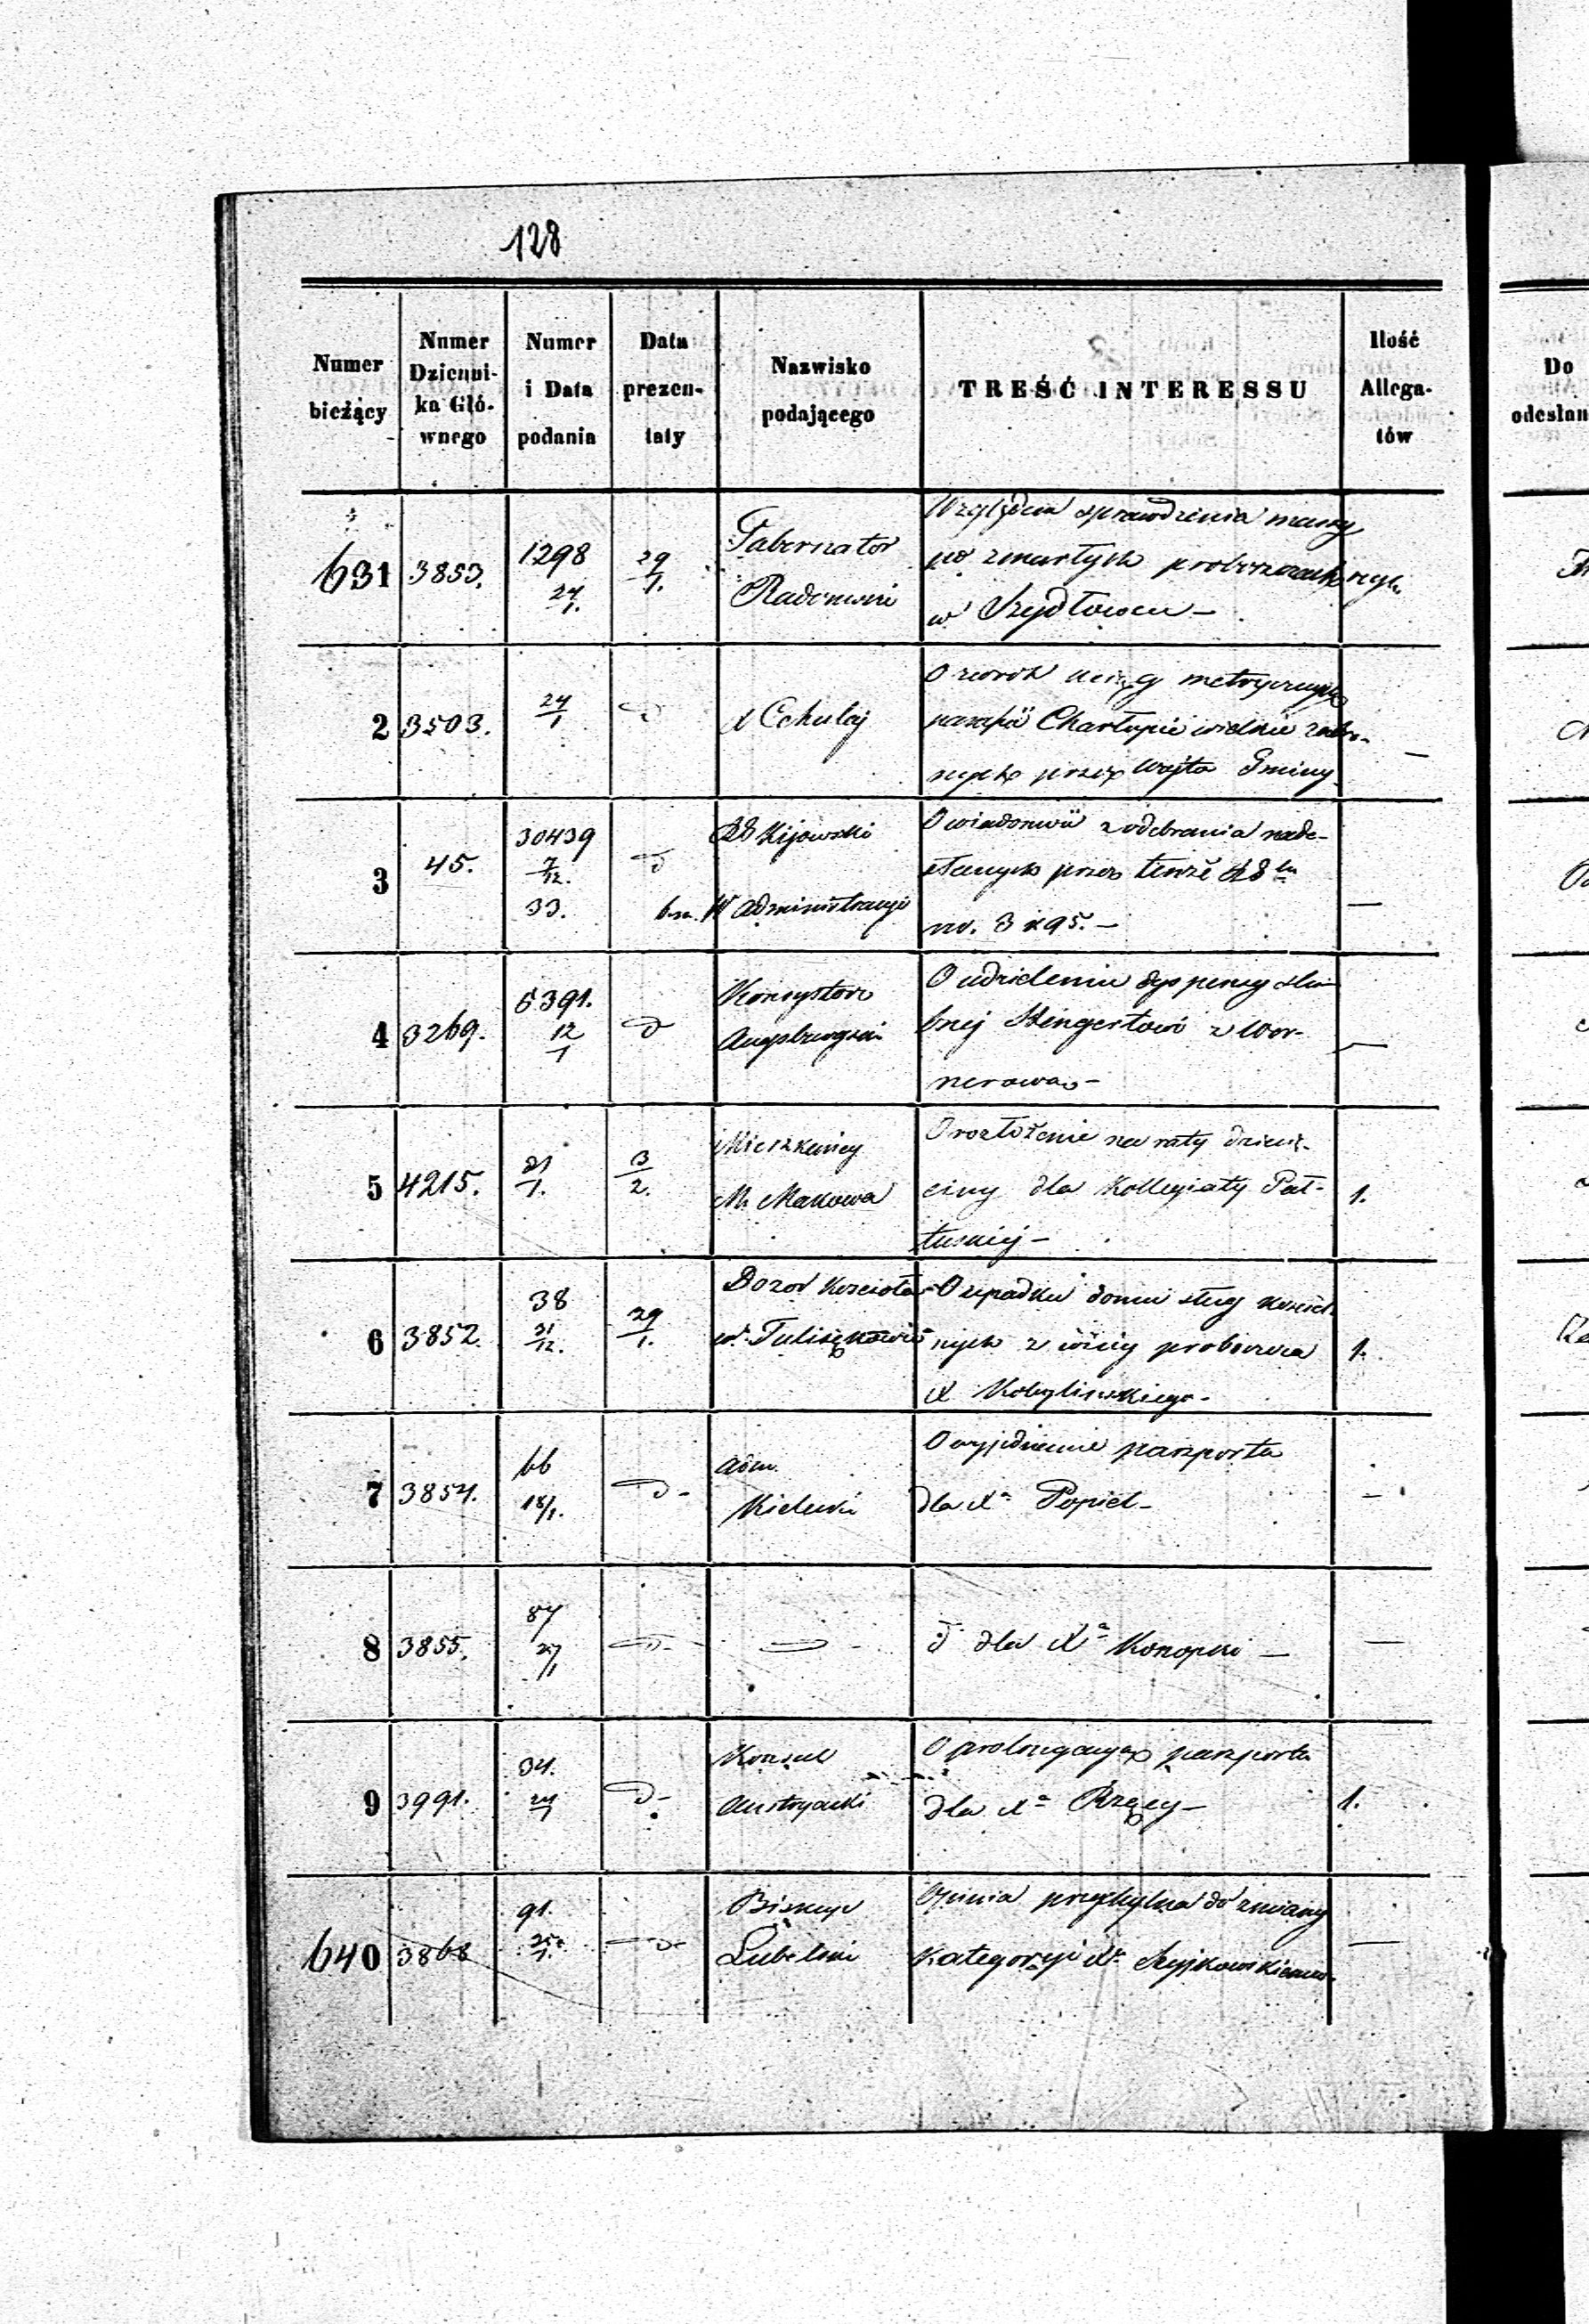 128
Numer bieżący
Numer Dziennika Głównego
Numer i Data podania
Data prezentaty
Nazwisko podającego
TREŚĆ INTERESSU
Ilość Allegatów
Do
odesłan
631 3853. 1298 27/1. 29/1. Gubernator Radomski
Względem sprawdzenia massy
po zmarłych proboszczach
w Szydłowcu –
2 3503. 24/1 d
O zwrot ksiąg metrycznych
parafii Charłupie wielkie zabra-
nych przez Wójta Gminy
3 45. 30439 7/12. 33. d Kijowski Administracyi
O wiadomości z odebrania nade-
słanych przez tenże
no. 3 i 95. –
4 3269. 5391. 12/1 d Konsystorz Augsburgski
O udzieleniu dyspensy ślu-
bnej Hengertowi z Wor-
nerową –
5 4215. 31/1. 3/2. Mieszkańcy M. Makowa
O rozłożenie na raty dziesię-
ciny dla Kollegiaty Puł-
tuskiej – 1.
6 3852. 38 31/12. 29/1. Dozór Kościoła w Tuliszkowie
O upadku domu sług kościel-
nych z winy proboszcza
X Kobylińskiego – 1.
7 3854. 66 18/1. d – Adm. Kielecki
O wyjednanie paszportu
dla Xa Popiel – –
8 3855. 87 27/1 d – –
d dla Xa Konopki – —
9 3991. 34. 24/1 d – Konsul Austryacki
O prolongacyą paszportu
dla Xa Rzęcy – 1.
640 3868 91. 25/1. d Biskup Lubelski
Opinia przychylna do zmiany
Kategoryi Xa —